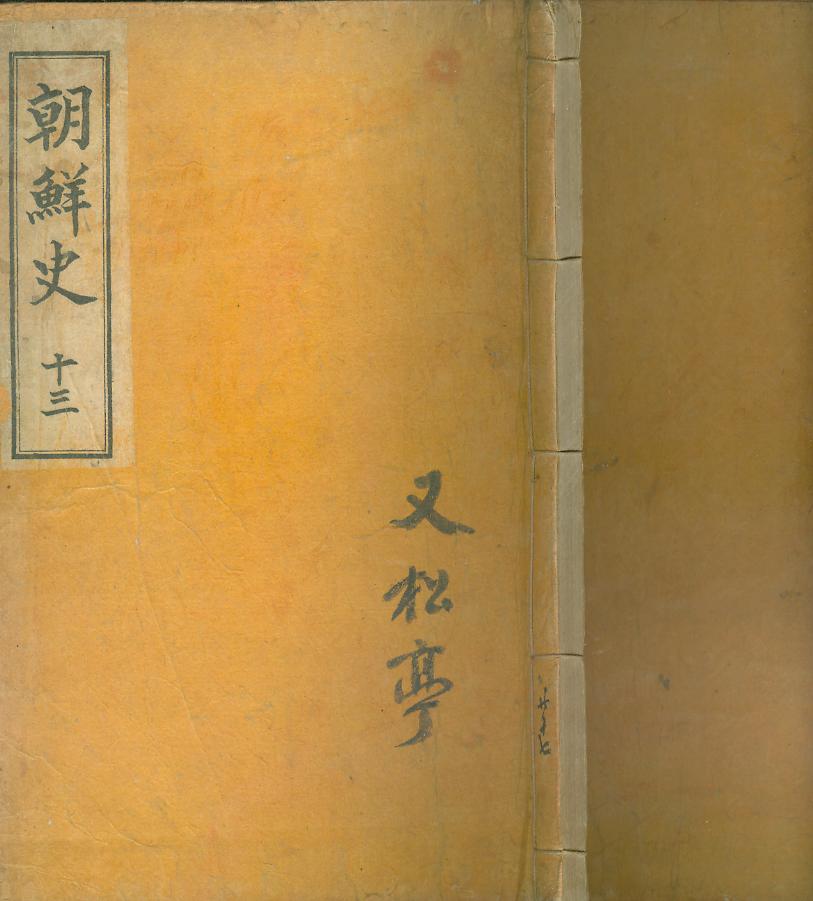 朝鮮史
十三
又松亭